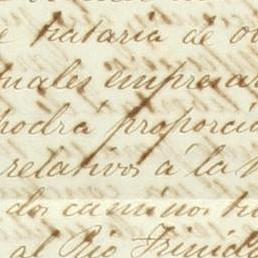 trataria de
tuales empresar
podrá proporció
relativos á la
dos caminos
al Rio Trinid